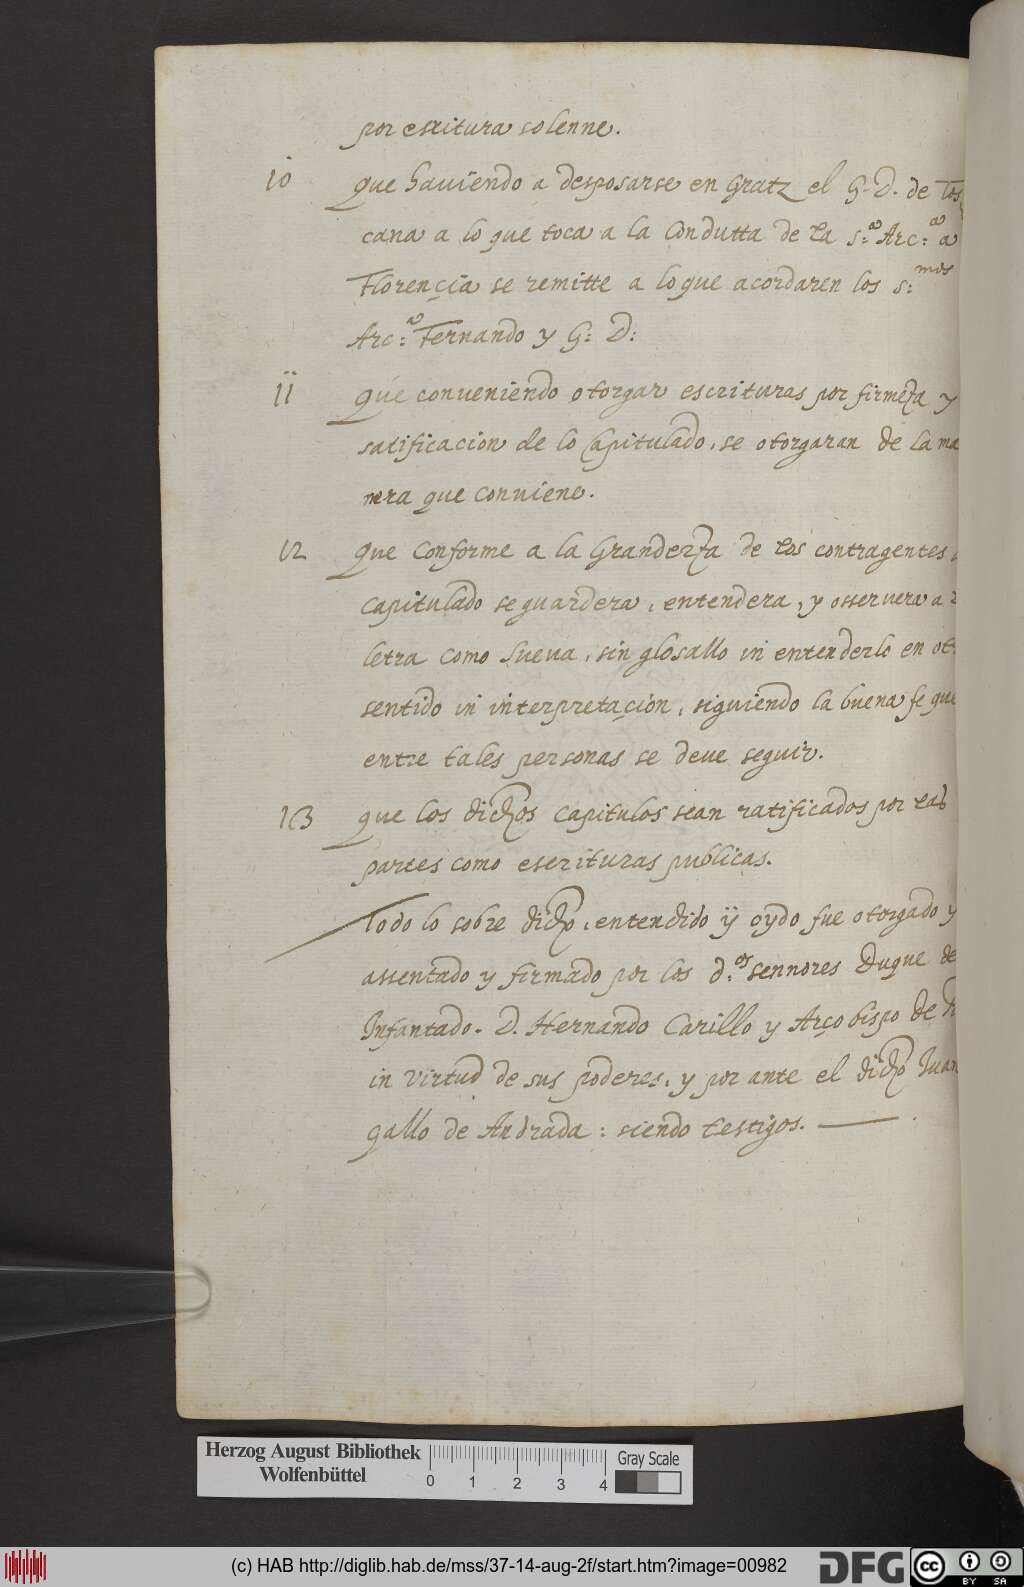 por escritura solenne.
10 Que haviendo a desposarse en Gratz el G. D. de Tos
cana a lo que toca a la Condutta de la S:ra Arc:a a
Florençia se remitte a lo que acordaren los S:mos
Arc:o Fernando y G: D:
11 Que conveniendo otorgar escrituras por firmeza y
satificacion de lo Capitulado, se otorgaran de la ma
nera que conviene.
12 Que Conforme a la Granderza de los contragentes
capitulado se guardera, entendera, y osservera a
letra como Suena, sin glosallo in entenderlo en ot
sentido in interpretaçion, siguiendo la buena fe que
entre tales personas se deve seguir.
13 que los dichos Capitulos sean ratificados por las
partes como escrituras publicas.
Todo lo sobre dicho, entendido ÿ oydo fue otorgado y
assentado y firmado por los d:os sennores Duque de
Infantado. D. Hernando Carillo y Arçobispo de
in virtud de sus poderes, y por ante el dicho Juan
gallo de Andrada: siendo testigos.
Herzog August Bibliothek
Wolfenbüttel
0 1 2 3 4
Gray Scale
(c) HAB http://diglib.hab.de/mss/37-14-aug-2f/start.htm?image=00982
DFG
cc BY SA